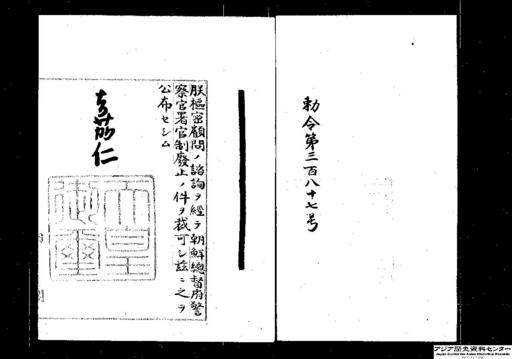 勅令第三百八十七号
朕樞密顧問ノ諮詢ヲ經テ朝鮮總督府警
察官署官制廢止ノ件ヲ裁可シ茲ニ之ヲ
公布セシム
嘉仁
天皇
御璽
アジア歴史資料センター
Japan Center for Asian Historical Records